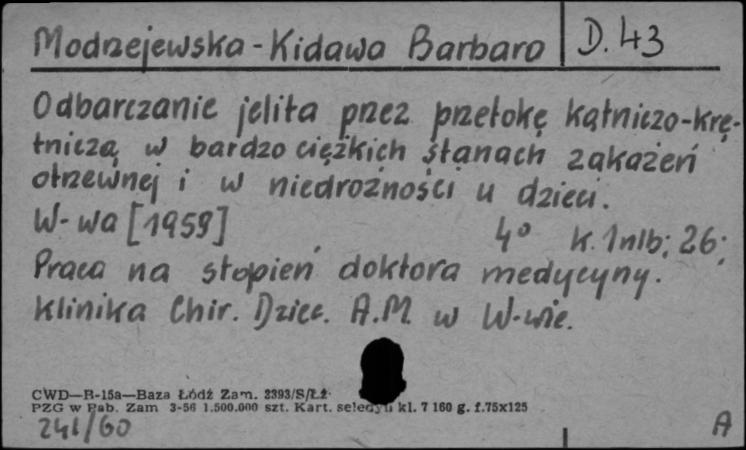 Modrzejewska-Kidawa Barbara D.43
Odbarczanie jelita przez przetokę kątniczo-krę-
tniczą w bardzo ciężkich stanach zakażeń
otrzewnej i w niedrożności u dzieci.
W-wa [1959] 4° k. 1nlb; 26;
Praca na stopień doktora medycyny.
Klinika Chir. Dziec. A.M. w W-wie.
CWD—B-15a—Baza Łódź Zam. 3393/S/ŁŻ
PZG w Pab. Zam 3-56 1.500.000 szt. Kart. seledyn kl. 7 160 g. f.75x125
241/60 A